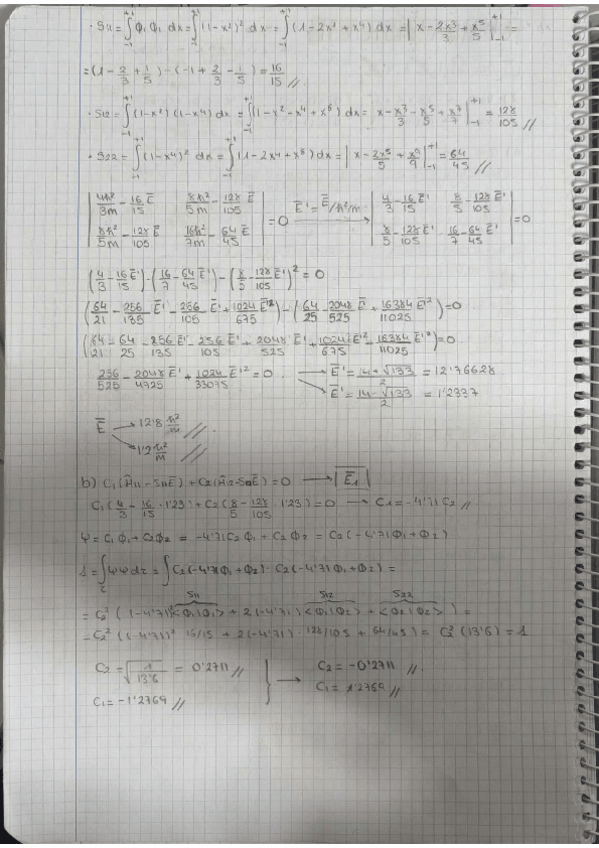 · S11 = ∫₋₁⁺¹ φ₁ φ₁ dx = ∫₋₁⁺¹ (1-x²)² dx = ∫₋₁⁺¹ (1-2x²+x⁴) dx = | x - 2x³/3 + x⁵/5 |₋₁⁺¹ =
= (1 - 2/3 + 1/5) - (-1 + 2/3 - 1/5) = 16/15 //
· S12 = ∫₋₁⁺¹ (1-x²)(1-x⁴) dx = ∫₋₁⁺¹ (1-x²-x⁴+x⁶) dx = x - x³/3 - x⁵/5 + x⁷/7 |₋₁⁺¹ = 128/105 //
· S22 = ∫₋₁⁺¹ (1-x⁴)² dx = ∫₋₁⁺¹ (1-2x⁴+x⁸) dx = | x - 2x⁵/5 + x⁹/9 |₋₁⁺¹ = 64/45 //
| 4ħ²/3m - 16/15 E̅   8ħ²/5m - 128/105 E̅ | = 0   E̅' = E̅/ħ²/m → | 4/3 - 16/15 E̅'   8/5 - 128/105 E̅' | = 0
| 8ħ²/5m - 128/105 E̅   16ħ²/7m - 64/45 E̅ |   | 8/5 - 128/105 E̅'   16/7 - 64/45 E̅' |
(4/3 - 16/15 E̅')·(16/7 - 64/45 E̅') - (8/5 - 128/105 E̅')² = 0
(64/21 - 256/135 E̅' - 256/105 E̅' + 1024/675 E̅'²) - (64/25 - 2048/525 E̅' + 16384/11025 E̅'²) = 0
(64/21 - 64/25 - 256/135 E̅' - 256/105 E̅' + 2048/525 E̅' + 1024/675 E̅'² - 16384/11025 E̅'²) = 0
256/525 - 2048/4725 E̅' + 1024/33075 E̅'² = 0 → E̅' = 14+√133/2 = 12'76628
→ E̅' = 14-√133/2 = 1'2337
E̅ → 12'8 ħ²/m //
→ 1'2 ħ²/m //
b) C₁(H11 - S11E̅) + C₂(H12 - S12E̅) = 0 → E̅₁
C₁(4/3 - 16/15 · 1'23) + C₂(8/5 - 128/105 · 1'23) = 0 → C₁ = -4'71 C₂ //
Ψ = C₁ φ₁ + C₂ φ₂ = -4'71 C₂ φ₁ + C₂ φ₂ = C₂(-4'71 φ₁ + φ₂)
1 = ∫ ΨΨ dτ = ∫ C₂(-4'71 φ₁ + φ₂) · C₂(-4'71 φ₁ + φ₂) =
S11   S12   S22
= C₂² ((-4'71)² <φ₁|φ₁> + 2(-4'71) <φ₁|φ₂> + <φ₂|φ₂>) =
= C₂² ((-4'71)² 16/15 + 2(-4'71) · 128/105 + 64/45) = C₂² (13'6) = 1
C₂ = √(1/13'6) = 0'2711 //   → C₂ = -0'2711 //
C₁ = -1'2769 //   C₁ = 1'2769 //